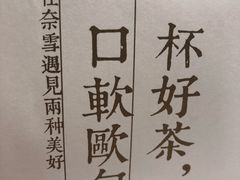 杯好茶，
口軟歐包
在奈雪遇見兩种美好